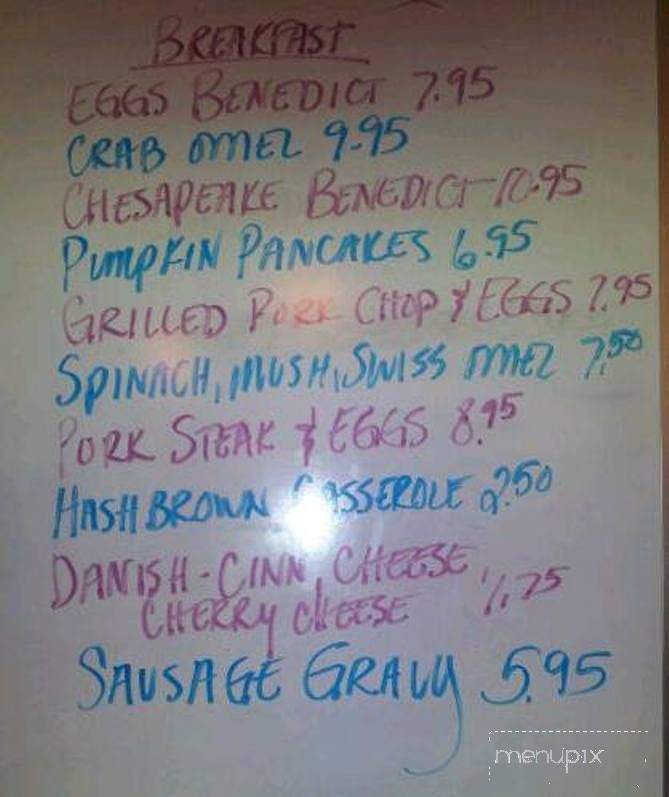 BREAKFAST
EGGS BENEDICT 7.95
CRAB OMEL 9.95
CHESAPEAKE BENEDICT 10.95
PUMPKIN PANCAKES 6.95
GRILLED PORK CHOP & EGGS 7.95
SPINACH, MUSH, SWISS OMEL 7.50
PORK STEAK & EGGS 8.95
HASHBROWN CASSEROLE 2.50
DANISH - CINN, CHEESE,
CHERRY CHEESE 1.75
SAUSAGE GRAVY 5.95
menupix